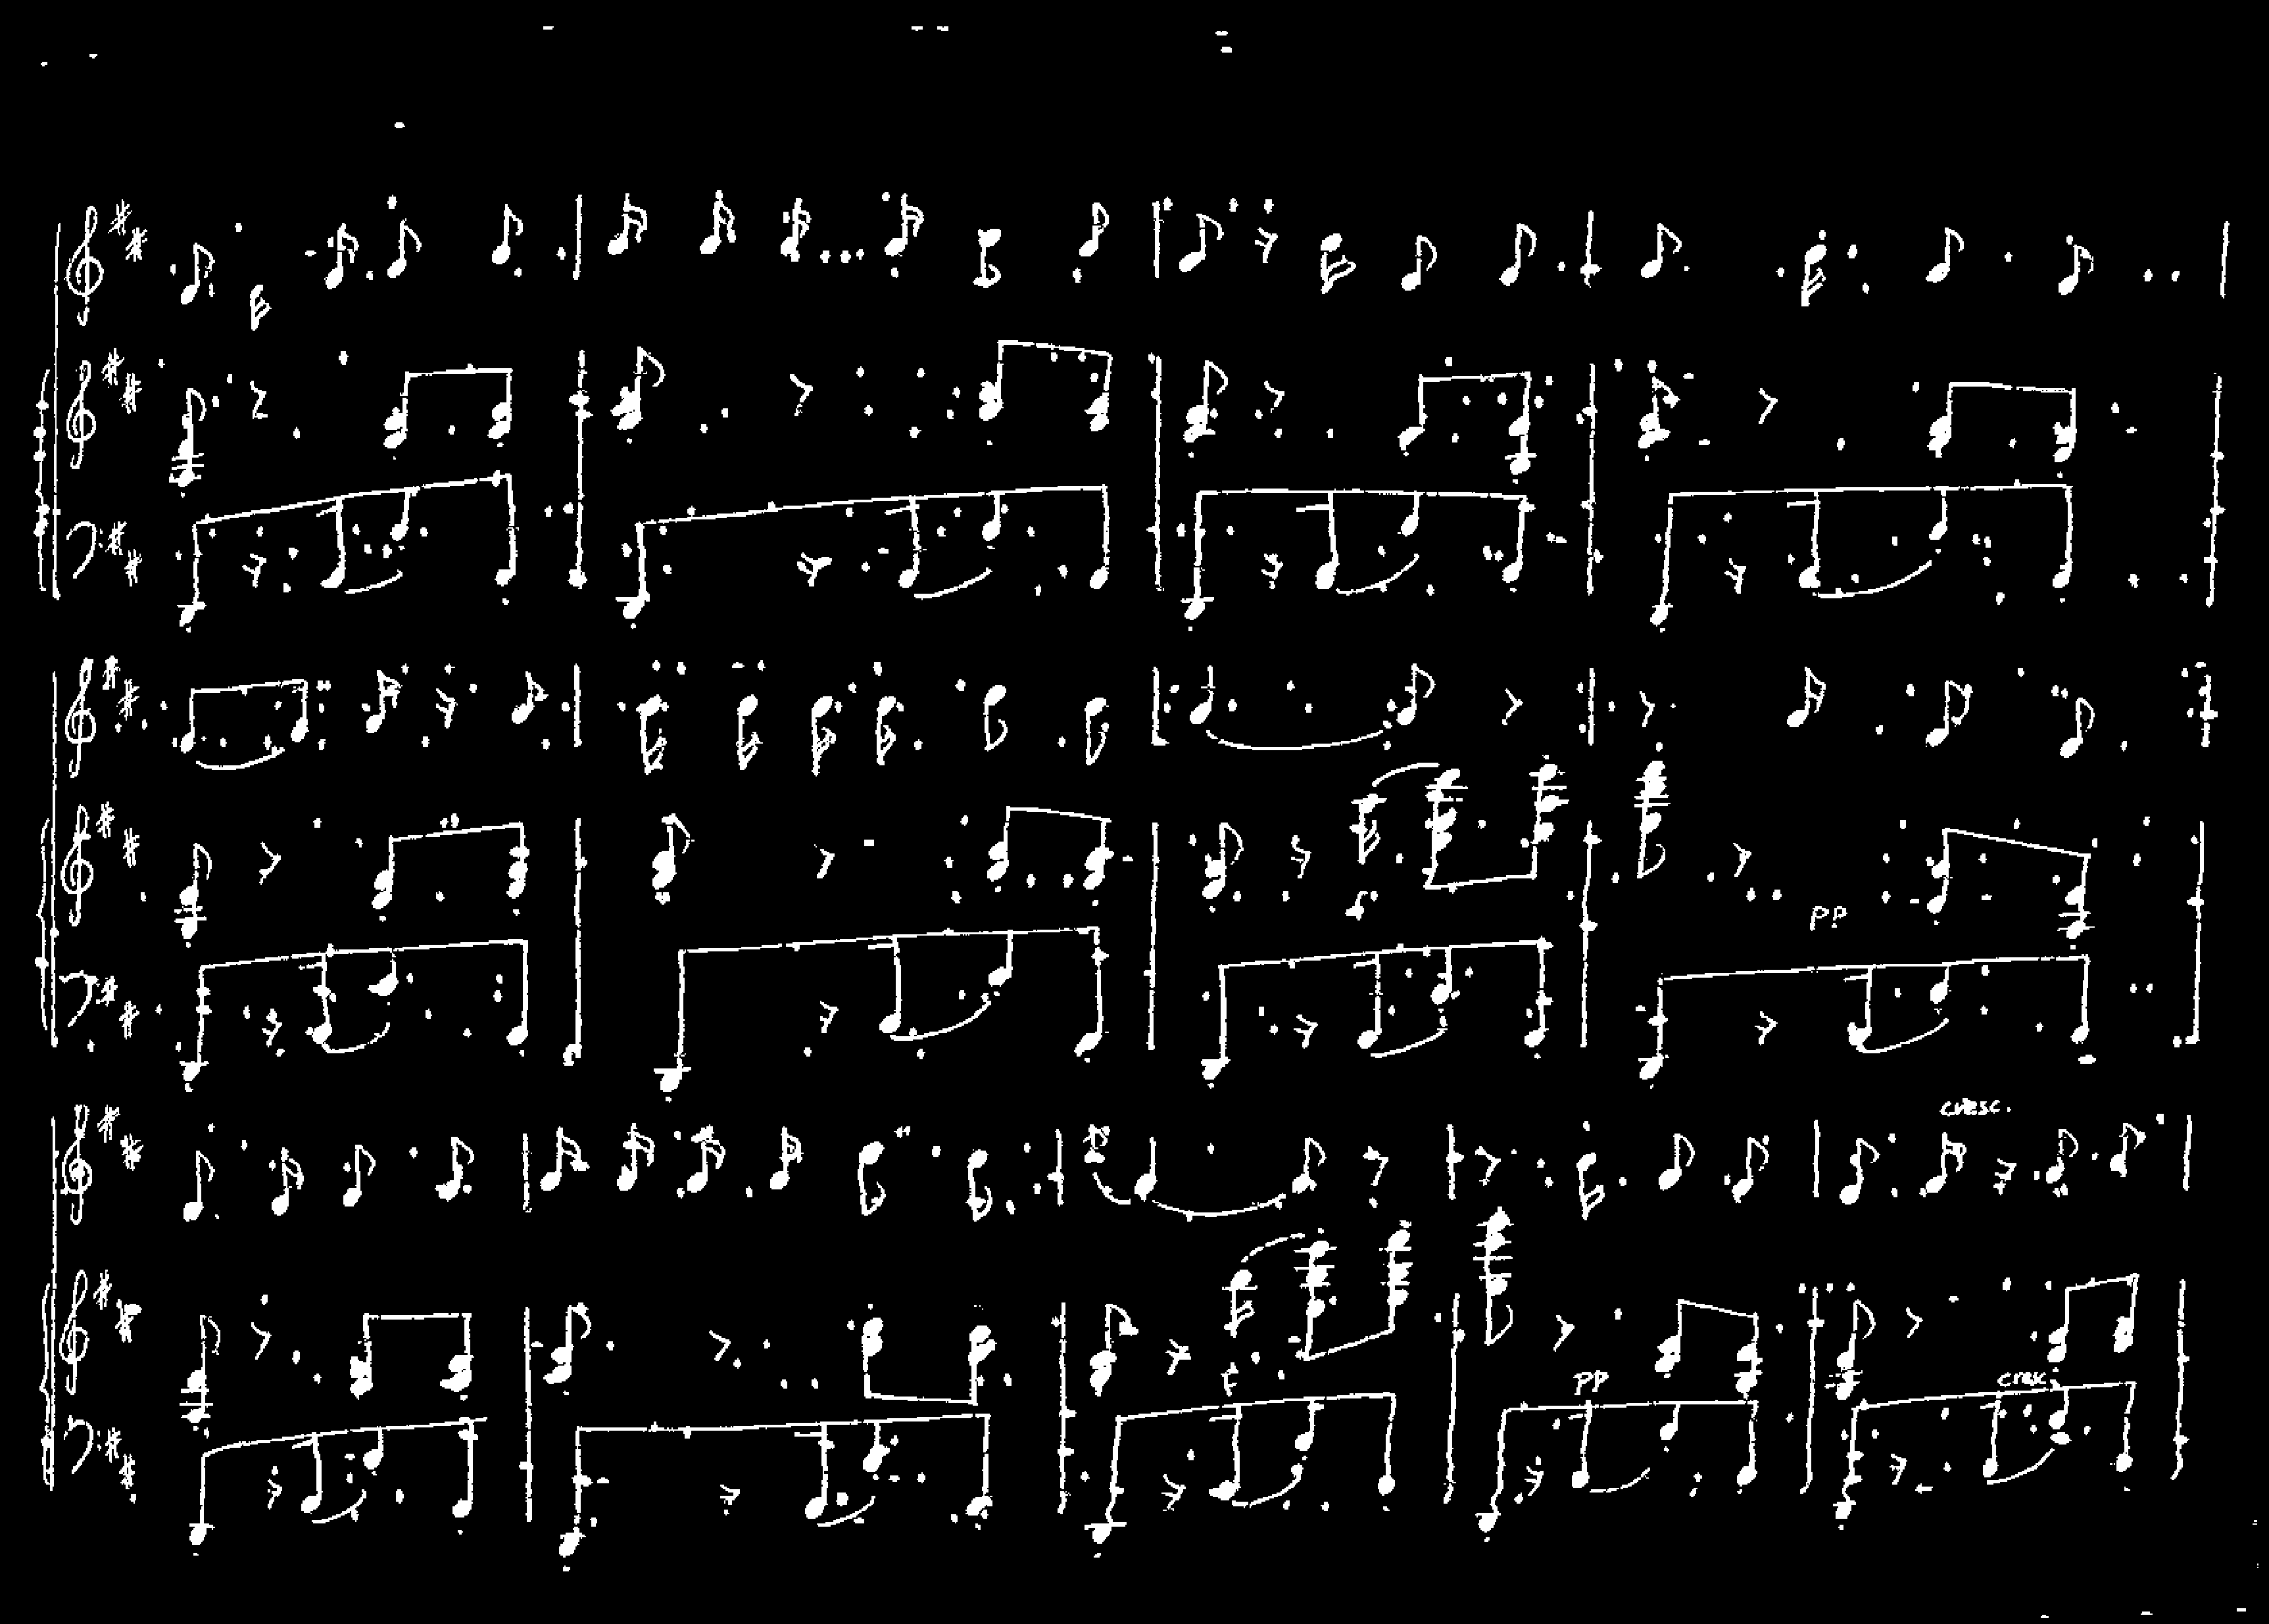 pp
cresc.
f
pp
cresc.